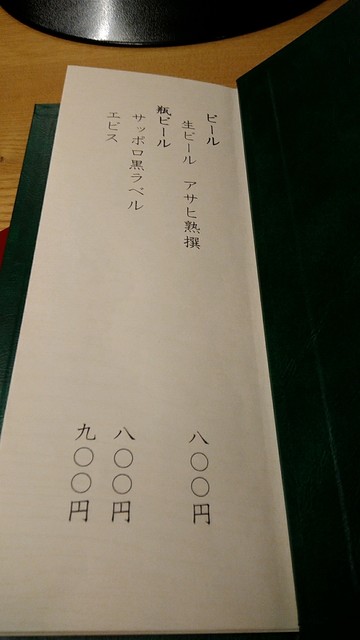 ビール
生ビール アサヒ熟撰 八〇〇円
瓶ビール
サッポロ黒ラベル 八〇〇円
エビス 九〇〇円